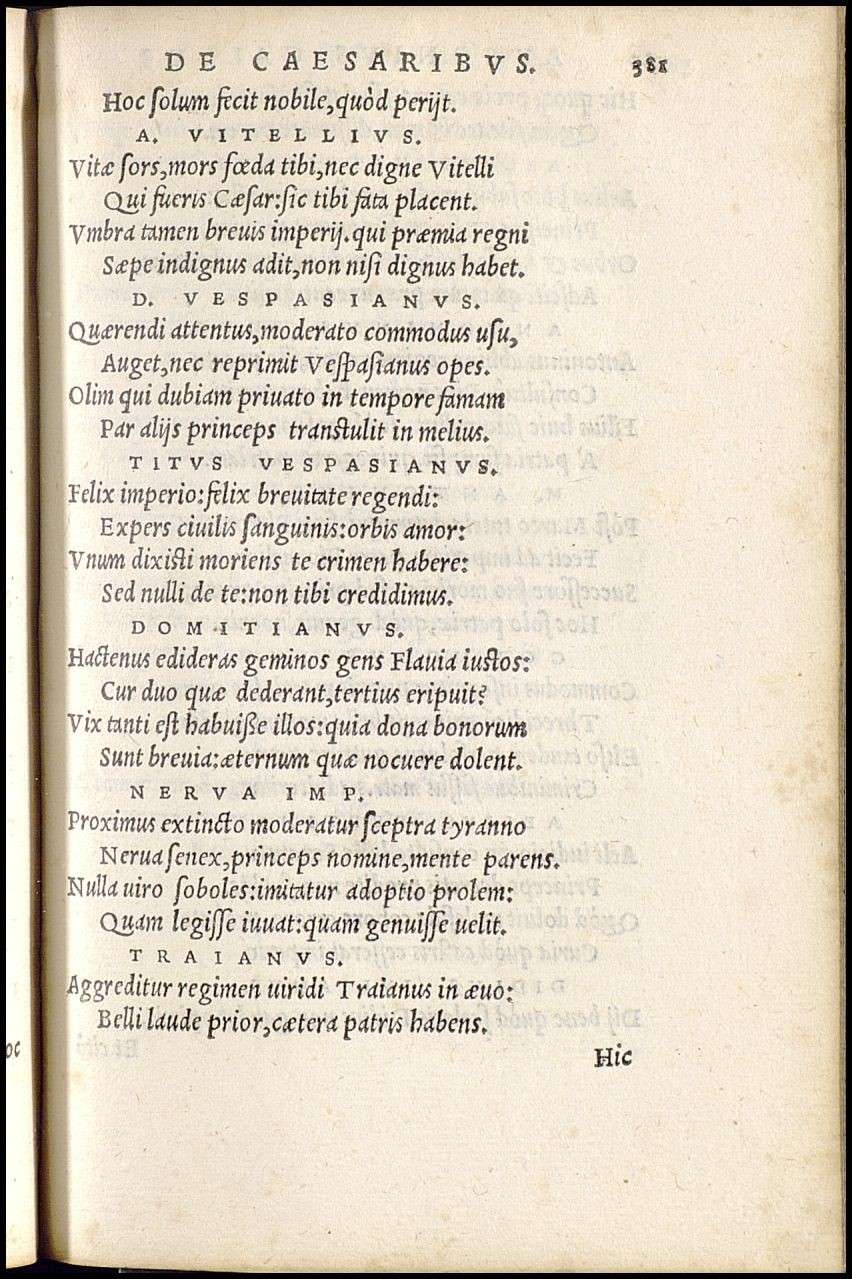 DE CAESARIBVS. 381
Hoc solum fecit nobile, quòd perijt.
A. VITELLIVS.
Vitæ sors, mors fœda tibi, nec digne Vitelli
Qui fueris Cæsar: sic tibi fata placent.
Vmbra tamen breuis imperij. qui præmia regni
Sæpe indignus adit, non nisi dignus habet.
D. VESPASIANVS.
Quærendi attentus, moderato commodus usu,
Auget, nec reprimit Vespasianus opes.
Olim qui dubiam priuato in tempore famam
Par alijs princeps transtulit in melius.
TITVS VESPASIANVS.
Felix imperio: felix breuitate regendi:
Expers ciuilis sanguinis: orbis amor:
Vnum dixisti moriens te crimen habere:
Sed nulli de te: non tibi credidimus.
DOMITIANVS.
Hactenus edideras geminos gens Flauia iustos:
Cur duo quæ dederant, tertius eripuit?
Vix tanti est habuiße illos: quia dona bonorum
Sunt breuia: æternum quæ nocuere dolent.
NERVA IMP.
Proximus extincto moderatur sceptra tyranno
Nerua senex, princeps nomine, mente parens.
Nulla uiro soboles: imitatur adoptio prolem:
Quam legisse iuuat: quam genuisse uelit.
TRAIANVS.
Aggreditur regimen uiridi Traianus in æuo:
Belli laude prior, cætera patris habens.
Hic